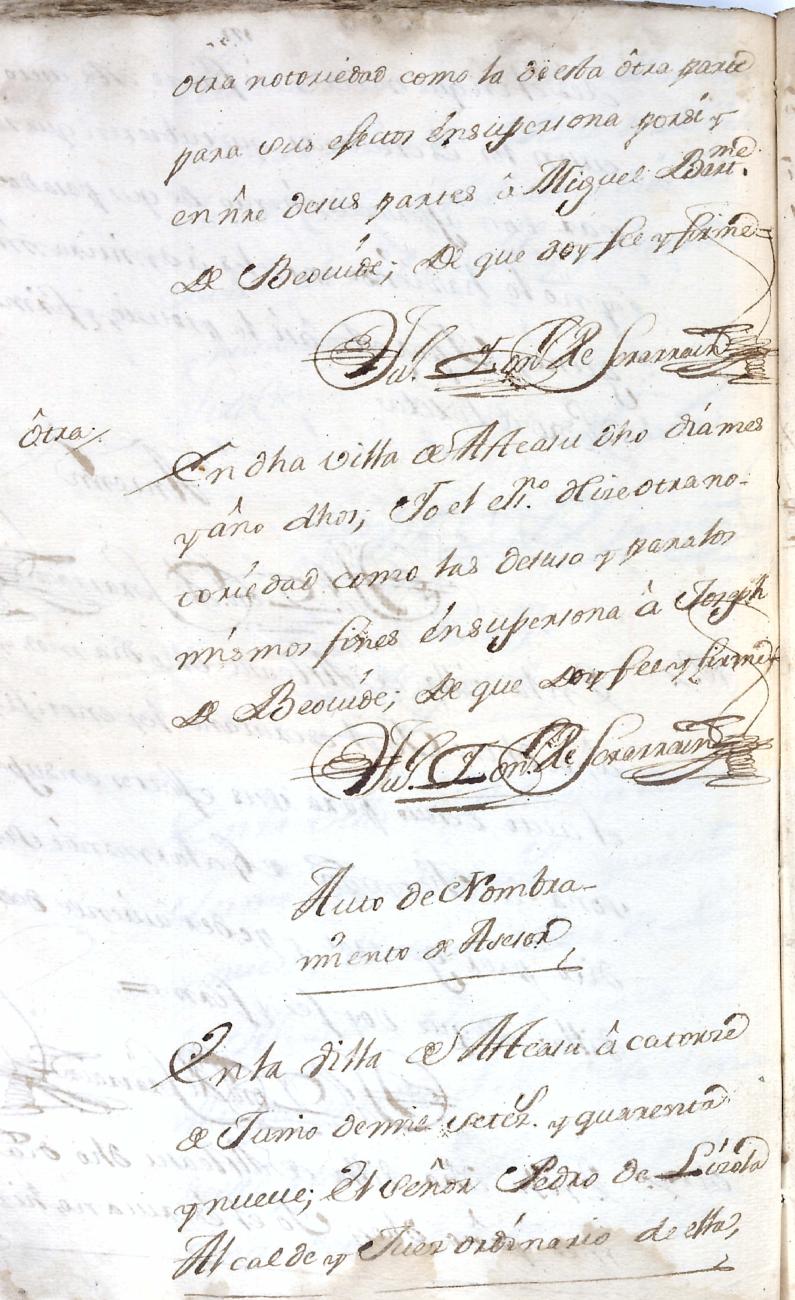 otra notoriedad como la de esta ôtra parte
para sus efectos énsupersona porsi y
en nre desus partes â Miguel Bart.me
de Beovide; de que doy fee y firmé =
Otra.
En dha villa de Alcasu dho día mes
y año dhos; Yo el essn.no hize otra no-
toriedad como las desuso y para los
mismos fines énsupersona â Joseph
de Beovide; de que doy fee y firmé
Auto de Nombra-
miento de Asesor
En la Villa de Alcasu â catorze
de Junio de mil setez. y quarenta
y nueve; El señor Pedro de Lizola
Alcalde y Juez ordinario de ella,